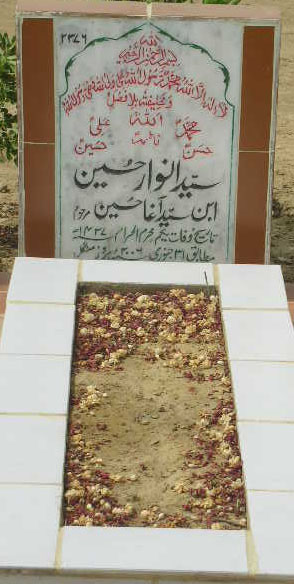 ۲۳۷۶
اللہ
بسم اللہ الرحمن الرحیم
لا الہ الا اللہ محمد رسول اللہ علی ولی اللہ وصی رسول اللہ
وخلیفتہ بلا فصل
محمدؐ اللہ علیؑ
حسنؑ فاطمہؑ حسینؑ
سید انوار حسین
ابن سید آغا حسین مرحوم
تاریخ وفات یکم محرم الحرام ۱۴۲۷ھ
مطابق ۳۱ جنوری ۲۰۰۶ء بروز منگل